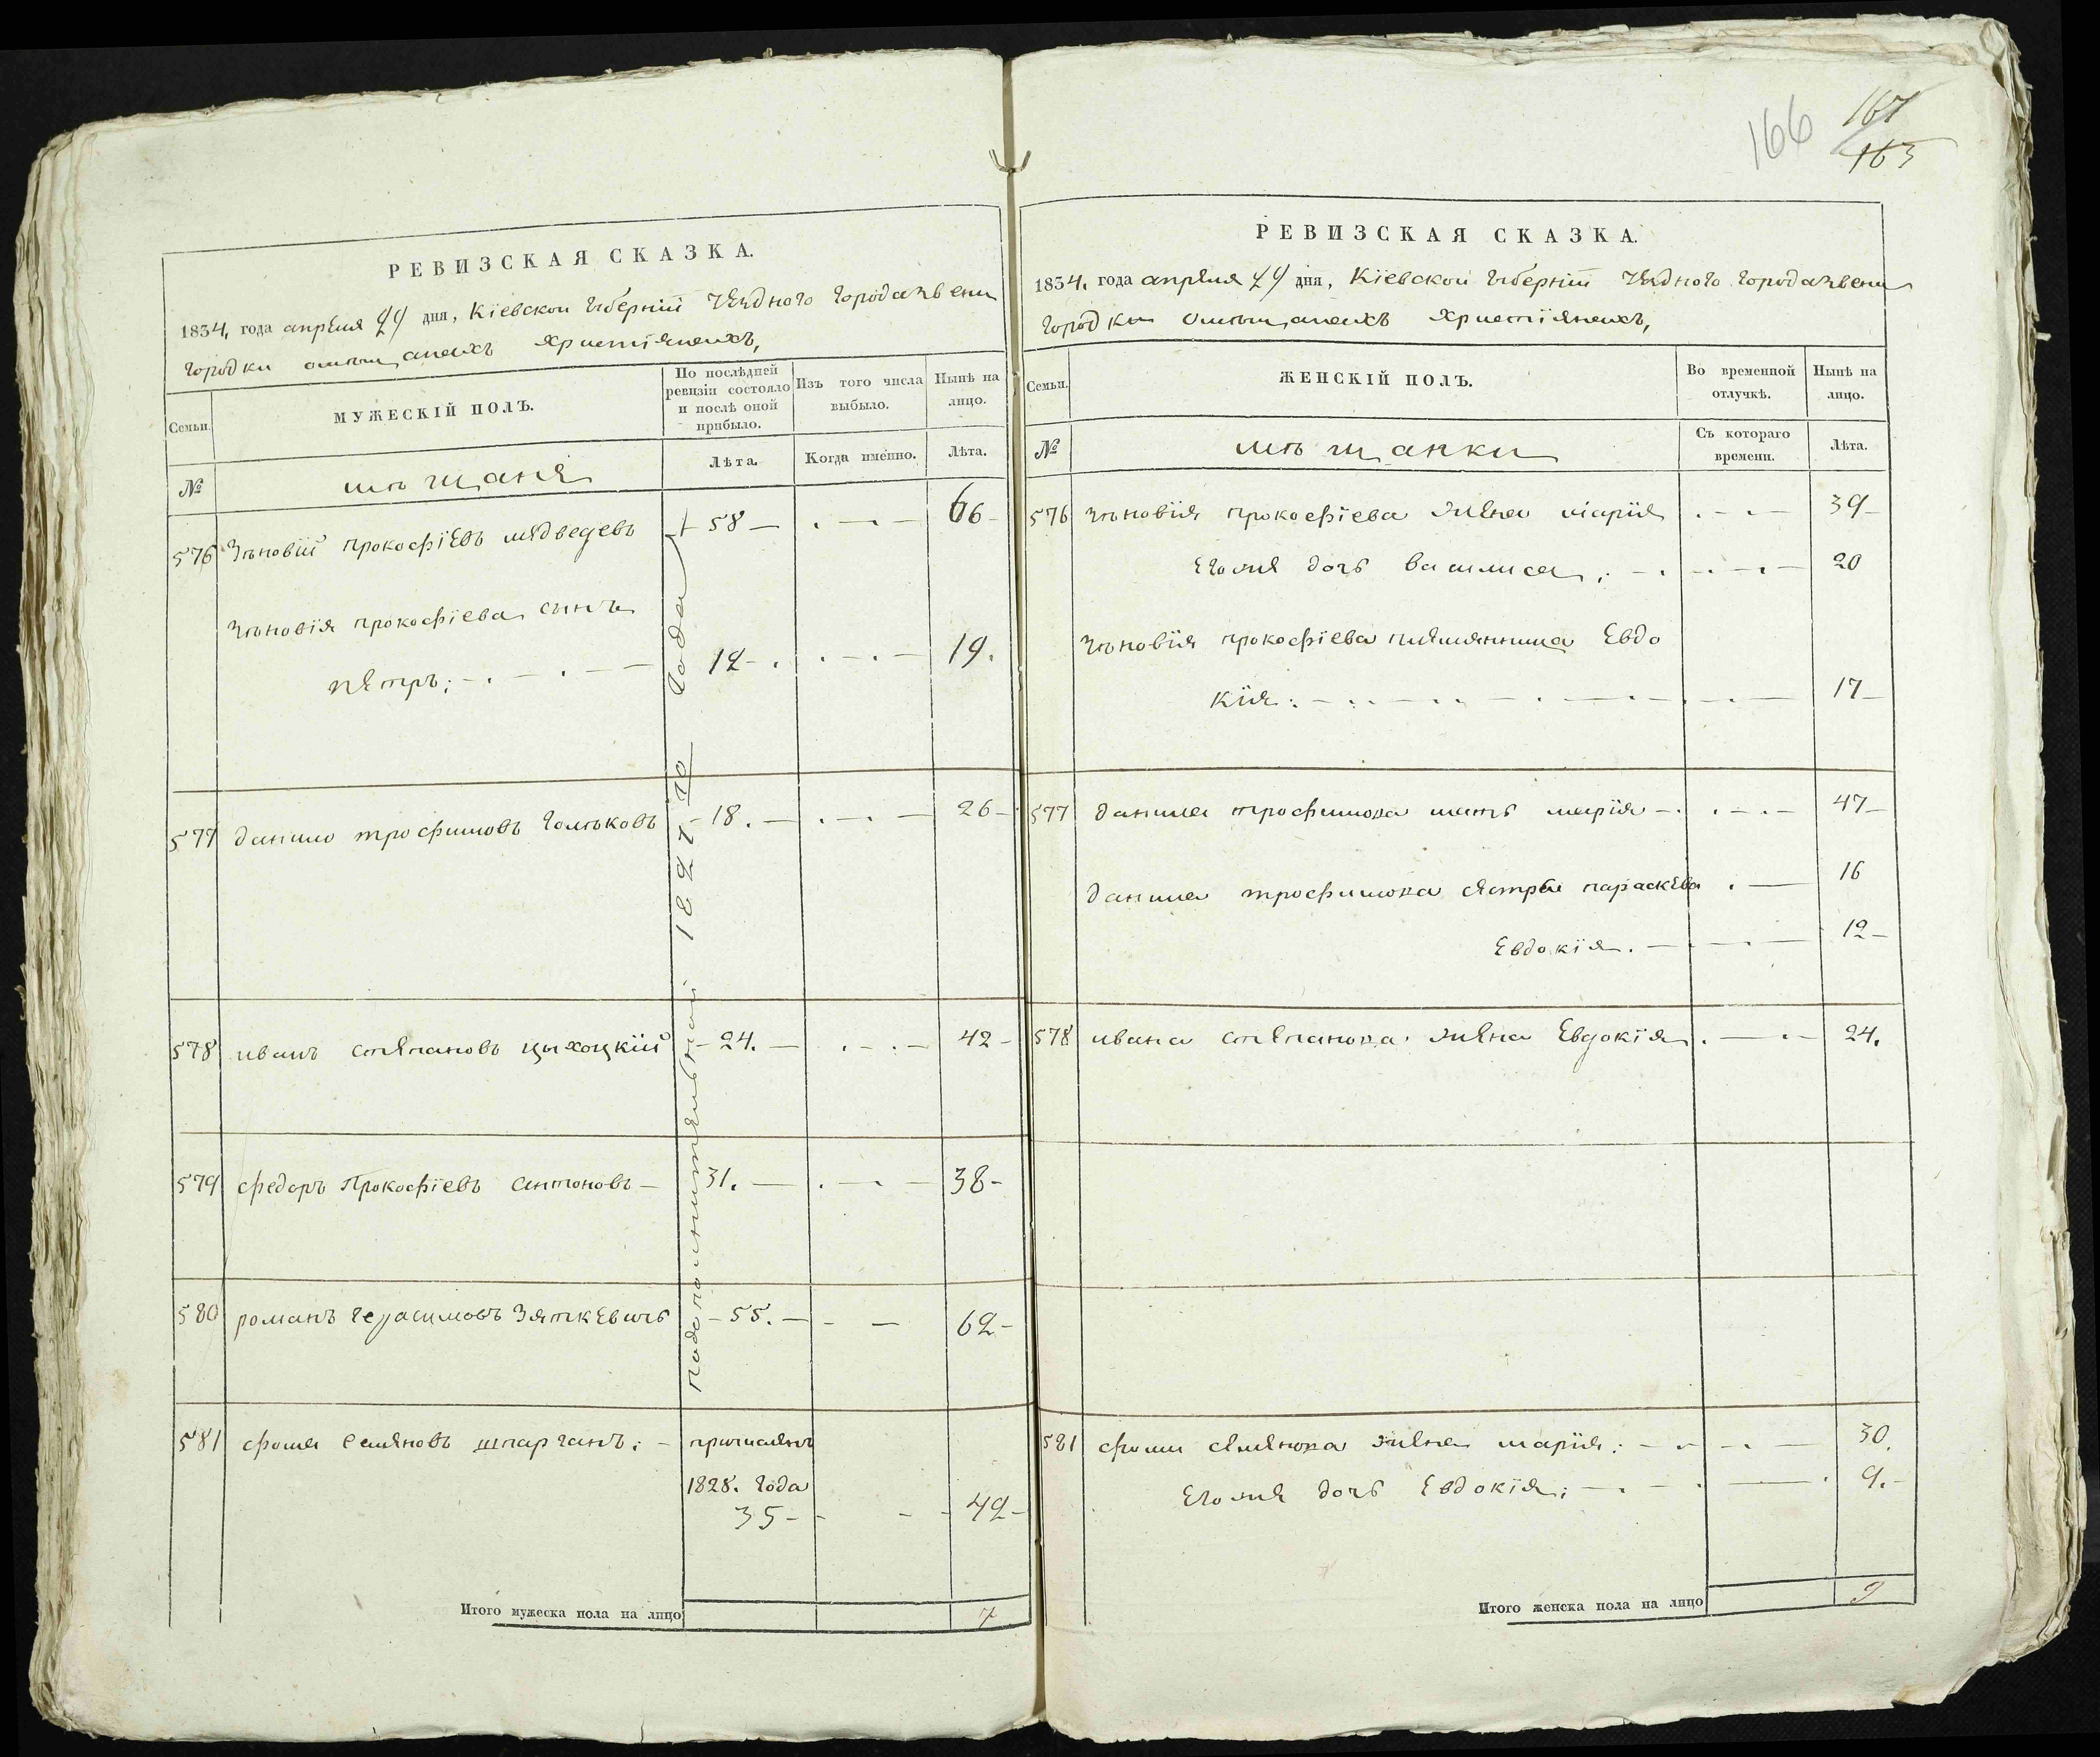 166
167
165
РЕВИЗСКАЯ СКАЗКА.
1834, года апреля 24 дня, Кіевской Губерніи уезднаго города звени
городки о мещанахъ христіянехъ,
Семьи.
МУЖЕСКІЙ ПОЛЪ.
По послѣдней ревизіи состояло и послѣ оной прибыло.
Изъ того числа выбыло.
Нынѣ на лицо.
№
мѣщаня
Лѣта.
Когда именно.
Лѣта.
576 Зѣновій прокофіевъ мядведевъ 58 — . — . — 66 -
Зѣновія прокофіева сынъ
пятръ; - . - . - — 12 - . . — . — 19.
577 данило трофимовъ Голѣковъ - 18. — . — . — 26 -
578 иванъ стяпановъ цыхоцкій - 24. — . — . — 42 -
579 федоръ Прокофіевъ антоновъ — 31. — . — . — 38 -
580 романъ Герасимовъ Зяткевичъ - 55. — - — 62 -
581 фома семяновъ шпарганъ; - причислянъ
1828. Года
35 - - - - 42 -
подополнительной 1827 го Года
Итого мужеска пола на лицо 7
РЕВИЗСКАЯ СКАЗКА.
1834, года апреля 24 дня, Кіевской Губерніи уезднаго города звени
городки о мещанехъ христіянехъ,
Семьи.
ЖЕНСКІЙ ПОЛЪ.
Во временной отлучкѣ.
Нынѣ на лицо.
№
мѣщанки
Съ котораго времени.
Лѣта.
576 Зѣновія прокофіева жена марія . - . — 39 -
Его жя дочь василиса; - . - . — 20
Зѣновія прокофіева плямянница Евдо
кія: - . - . - . — 17 -
577 данила трофимова мать марія - . . - . — 47 -
данила трофимова сястры параскева . — 16
Евдокія. — . — . — 12 -
578 ивана стяпанова жена Евдокія . — . - 24.
581 фомы семянова жена марія: - . - . — 30.
Его жя дочь Евдокія; - . - . — . 9. -
Итого женска пола на лицо 9